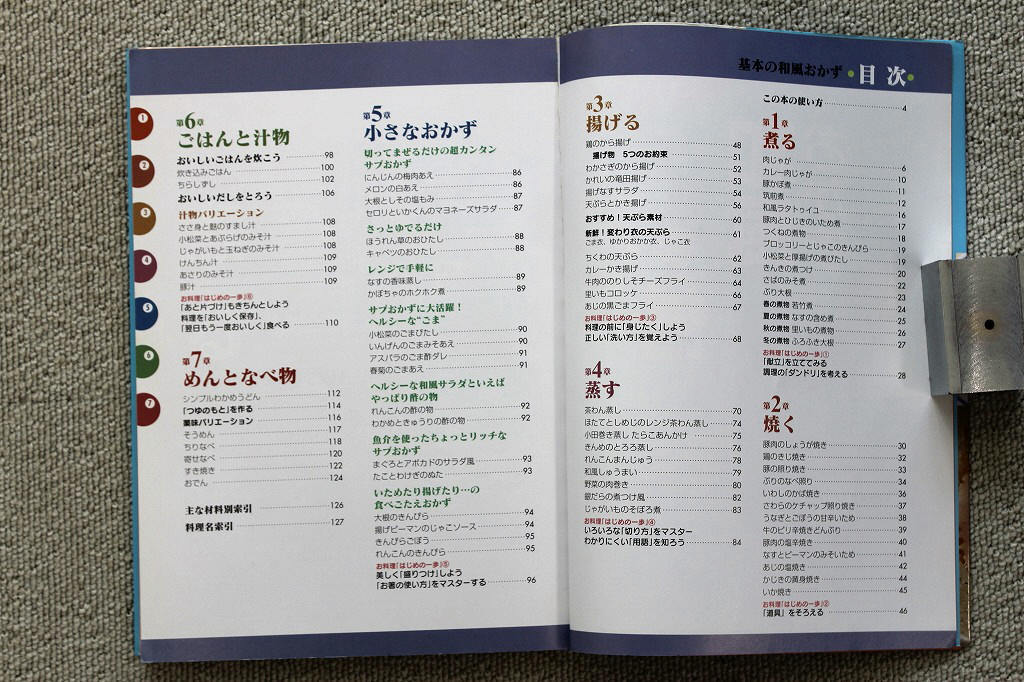 基本の和風おかず ●目次●
この本の使い方 4
第1章
煮る
肉じゃが 6
カレー肉じゃが 10
豚かぼ煮 11
筑前煮 12
和風ラタトゥイユ 16
豚肉とひじきのいため煮 17
つくねの煮物 18
ブロッコリーとじゃこのきんぴら 19
小松菜と厚揚げの煮びたし 19
きんきの煮つけ 20
さばのみそ煮 22
ぶり大根 23
春の煮物 若竹煮 24
夏の煮物 なすの含め煮 25
秋の煮物 里いもの煮物 26
冬の煮物 ふろふき大根 27
お料理「はじめの一歩」①
「献立」を立ててみる
調理の「ダンドリ」を考える 28
第2章
焼く
豚肉のしょうが焼き 30
鶏のきじ焼き 32
豚の照り焼き 33
ぶりのなべ照り 34
いわしのかば焼き 36
さわらのケチャップ照り焼き 37
うなぎとごぼうの甘辛いため 38
牛のピリ辛焼きどんぶり 39
豚肉の塩辛焼き 40
なすとピーマンのみそいため 41
あじの塩焼き 42
かじきの黄身焼き 44
いか焼き 45
お料理「はじめの一歩」②
「道具」をそろえる 46
第3章
揚げる
鶏のから揚げ 48
揚げ物 5つのお約束 51
わかさぎのから揚げ 52
かれいの竜田揚げ 53
揚げなすサラダ 54
天ぷらとかき揚げ 56
おすすめ！天ぷら素材 60
新鮮！変わり衣の天ぷら 61
ごま衣、ゆかりおかか衣、じゃこ衣
ちくわの天ぷら 62
カレーかき揚げ 63
牛肉ののりしそチーズフライ 64
里いもコロッケ 66
あじの黒ごまフライ 67
お料理「はじめの一歩」③
料理の前に「身じたく」しよう
正しい「洗い方」を覚えよう 68
第4章
蒸す
茶わん蒸し 70
ほたてとしめじのレンジ茶わん蒸し 74
小田巻き蒸し たらこあんかけ 75
きんめのとろろ蒸し 76
れんこんまんじゅう 78
和風しゅうまい 79
野菜の肉巻き 80
銀だらの煮つけ風 82
じゃがいものそぼろ煮 83
お料理「はじめの一歩」④
いろいろな「切り方」をマスター
わかりにくい「用語」を知ろう 84
第5章
小さなおかず
切ってまぜるだけの超カンタン
サブおかず
にんじんの梅肉あえ 86
メロンの白あえ 86
大根としその塩もみ 87
セロリといかくんのマヨネーズサラダ 87
さっとゆでるだけ
ほうれん草のおひたし 88
キャベツのおひたし 88
レンジで手軽に
なすの香味蒸し 89
かぼちゃのホクホク煮 89
サブおかずに大活躍！
ヘルシーな"ごま"
小松菜のごまびたし 90
いんげんのごまみそあえ 90
アスパラのごま酢ダレ 91
春菊のごまあえ 91
ヘルシーな和風サラダといえば
やっぱり酢の物
れんこんの酢の物 92
わかめときゅうりの酢の物 92
魚介を使ったちょっとリッチな
サブおかず
まぐろとアボカドのサラダ風 93
たことわけぎのぬた 93
いためたり揚げたり…の
食べごたえおかず
大根のきんぴら 94
揚げピーマンのじゃこソース 94
きんぴらごぼう 95
れんこんのきんぴら 95
お料理「はじめの一歩」⑤
美しく「盛りつけ」しよう
「お箸の使い方」をマスターする 96
第6章
ごはんと汁物
おいしいごはんを炊こう 98
炊き込みごはん 100
ちらしずし 102
おいしいだしをとろう 106
汁物バリエーション
ささ身と麩のすまし汁 108
小松菜とあぶらげのみそ汁 108
じゃがいもと玉ねぎのみそ汁 108
けんちん汁 109
あさりのみそ汁 109
豚汁 109
お料理「はじめの一歩」⑥
「あと片づけ」もきちんとしよう
料理を「おいしく保存」、
「翌日もう一度おいしく」食べる 110
第7章
めんとなべ物
シンプルわかめうどん 112
「つゆのもと」を作る 114
薬味バリエーション 116
そうめん 117
ちりなべ 118
寄せなべ 120
すき焼き 122
おでん 124
主な材料別索引 126
料理名索引 127
1
2
3
4
5
6
7